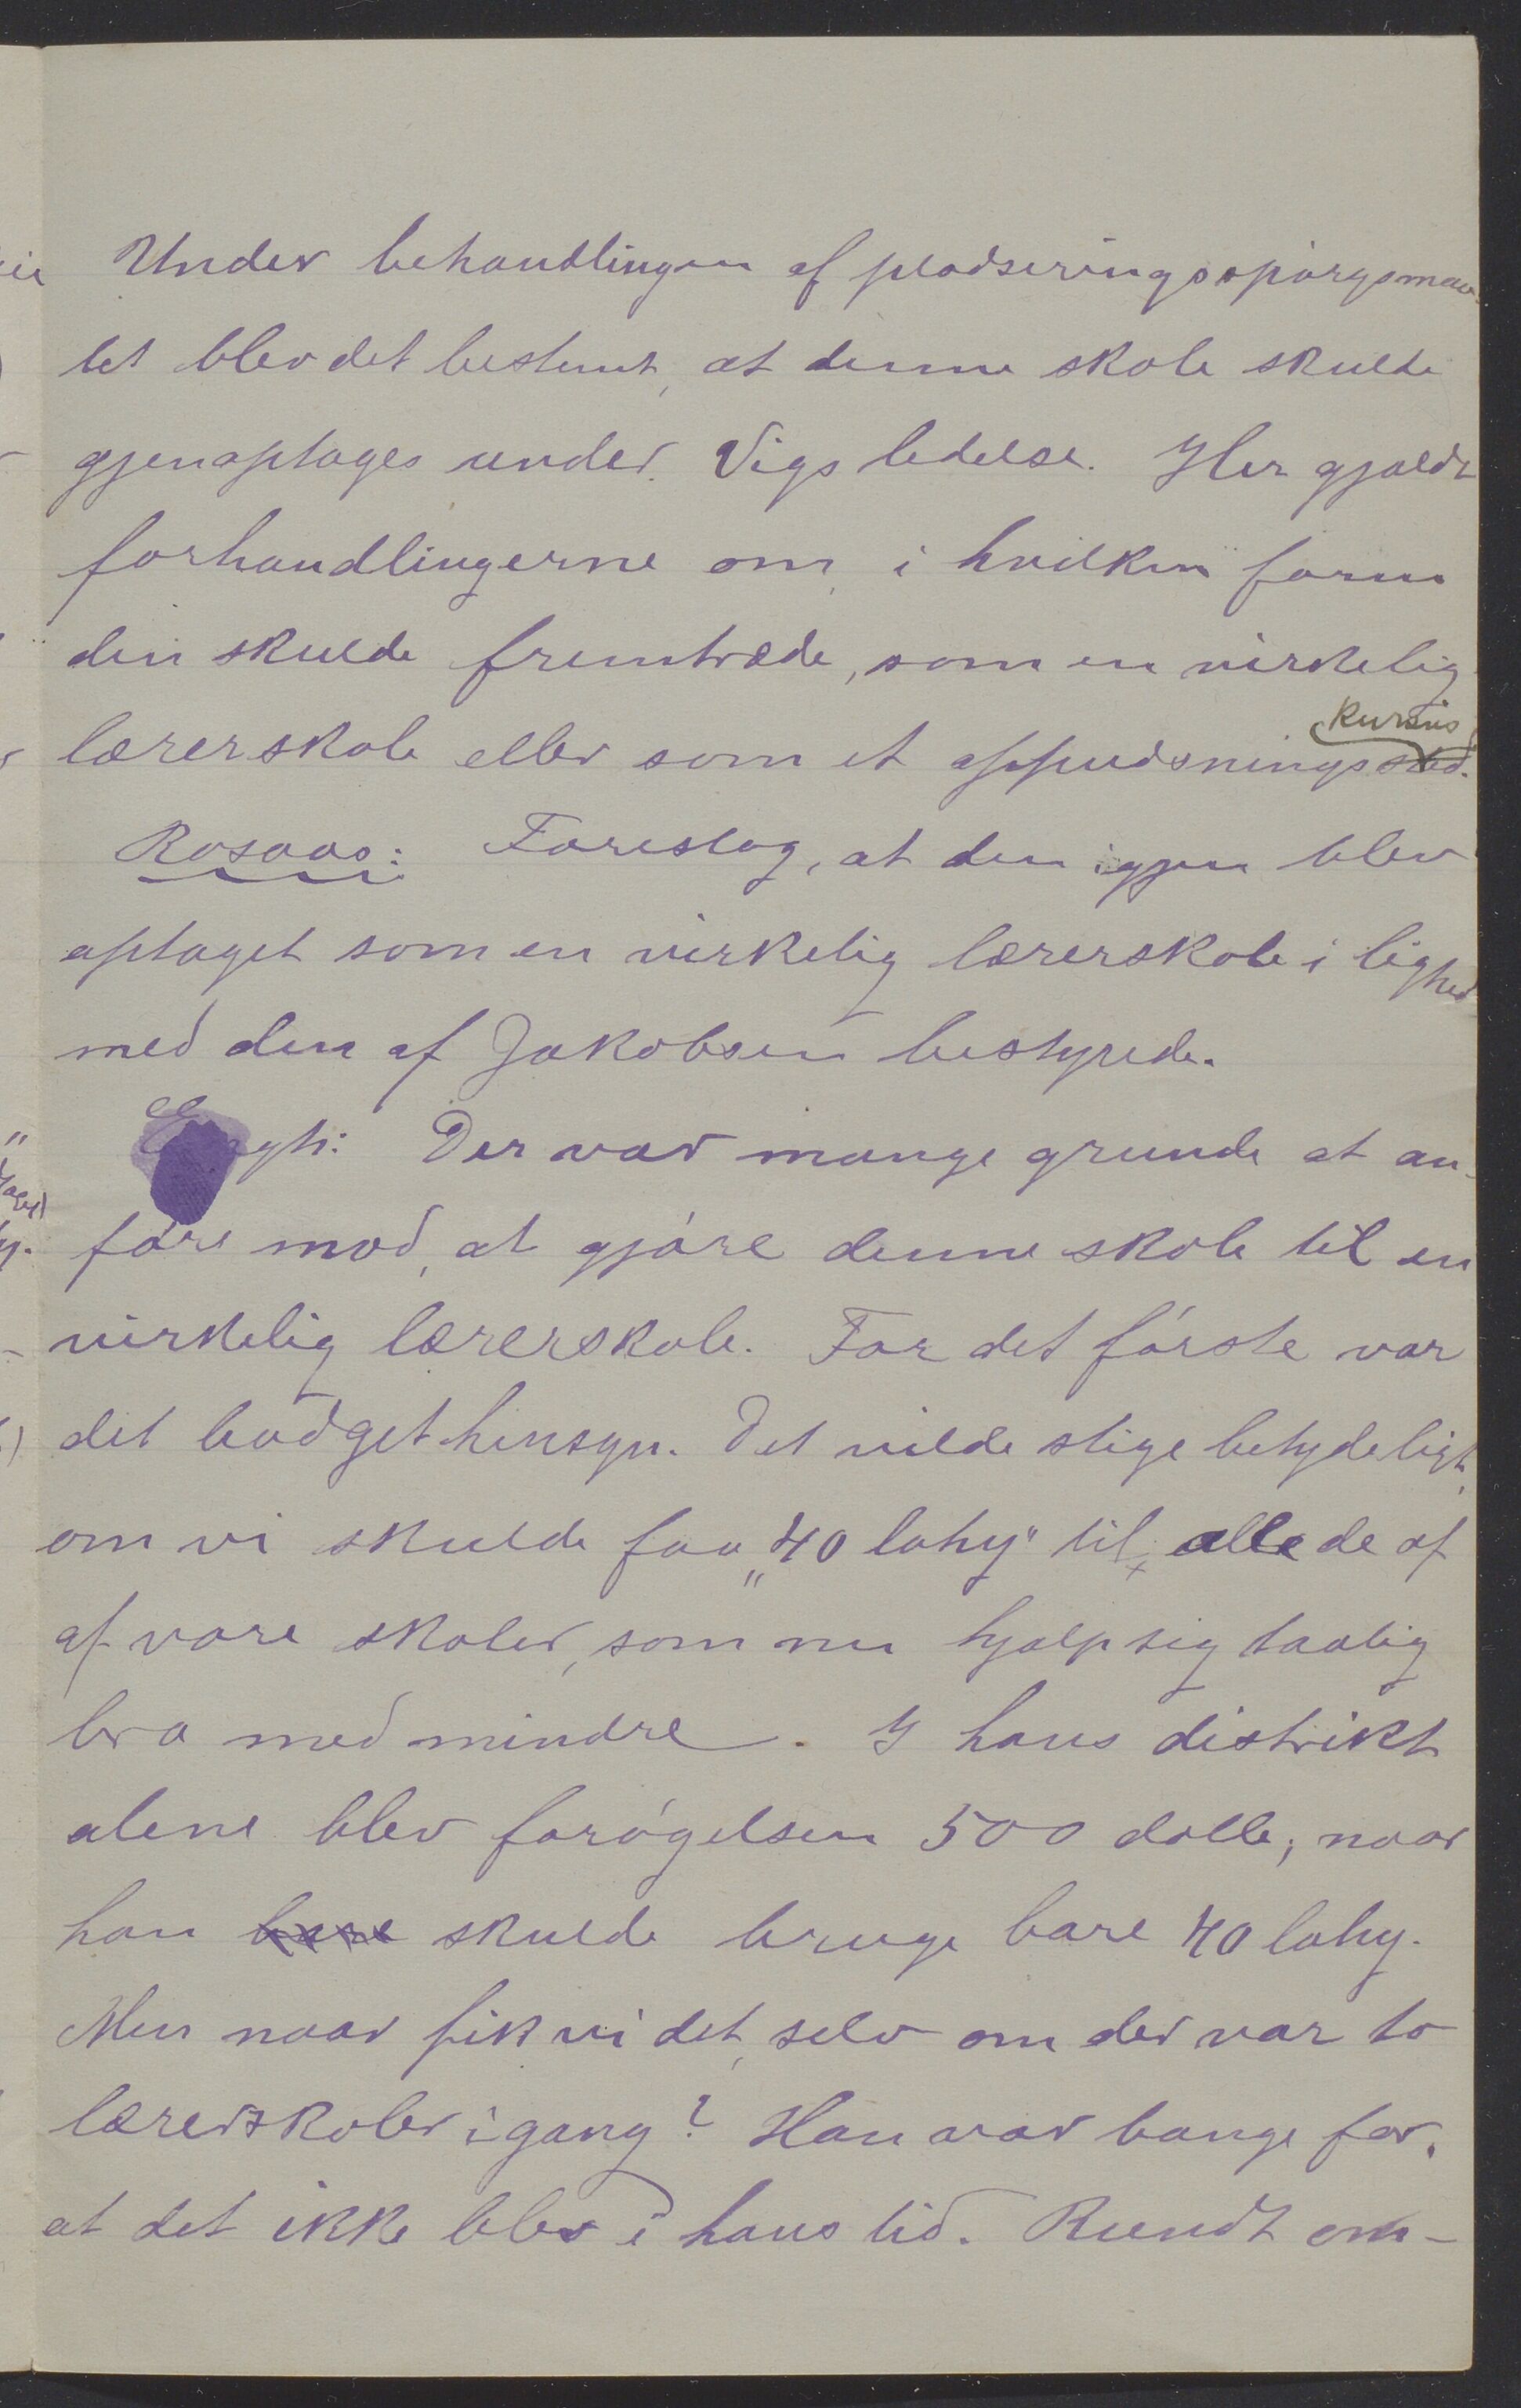 Under behandlingen af pladseringsspørgsmaa-
let blev det bestemt, at denne skole skulde
gjenoptages under Vigs ledelse. Her gjaldt
forhandlingerne om, i hvilken form
den skulde fremtræde, som en virkelig
kursus
lærerskole eller som et oppudsningssted.
Rosaas: Foreslog, at den igjen blev
optaget som en virkelig lærerskole i lighed
med den af Jakobsen bestyrede.
Der var mange grunde at an-
føre mod, at gjøre denne skole til en
virkelig lærerskole. For det første var
det budgethensyn. Det vilde stige betydeligt,
om vi skulde faa „40 lahy" til alle de af
af vore skoler, som nu hjalp sig taalig
bra med mindre. I hans distrikt
alene blev forøgelsen 500 doll., naar
han bare skulde bruge bare 40 lahy.
Men naar fik vi det, selv om der var to
lærerskoler igang? Han var bange for,
at det ikke blev i hans tid. Rundt om-